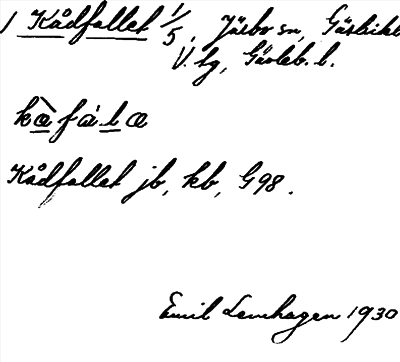 1 Kådfallet 1/5, Järbo sn, Gästrikl
V. lg, Gävleb. l.
kàfálæ
Kådfallet jb, kb, G98.
Emil Lenhagen 1930